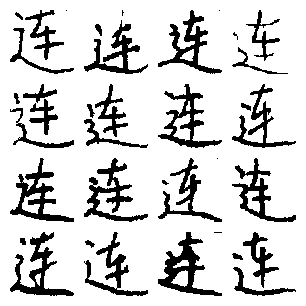 连连连连
连连连连
连连连连
连连连连